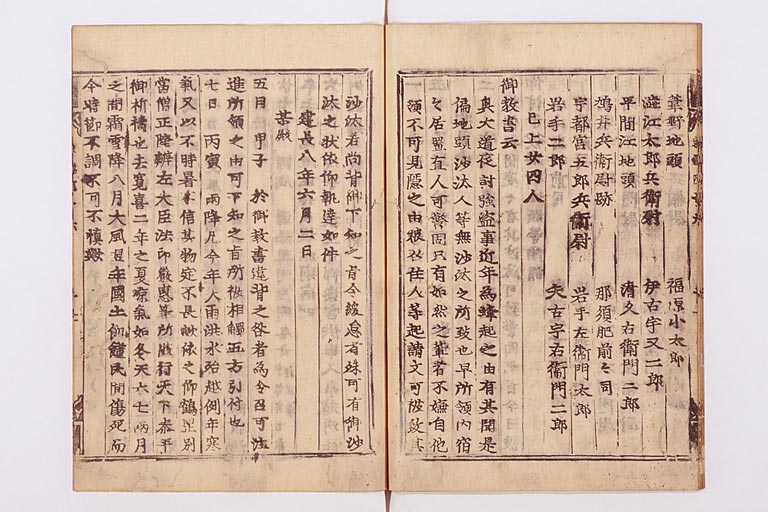 葦野地頭　福原小太郎
澁江太郎兵衛尉　伊古宇又二郎
平間江地頭　清久右衛門二郎
鳩井兵衛尉跡　那須肥前々司
宇都宮五郎兵衛尉　岩手左衛門太郎
岩手二郎　矢古宇右衛門二郎
已上廿四人
御教書云
奥大道夜討強盗事近年爲蜂起之由有其聞是
偏地頭沙汰人等無沙汰之所致也早所領内宿
々居置直人可警固只有如然之輩者不嫌自他
領不可見隱之由被召住人等起請文可被致其
沙汰若尚背御下知之旨令緩怠者殊可有御沙
汰之状依仰執達如件
建長八年六月二日
某殿
五月　甲子　於御教書違背之咎者爲令召可注
進所領之由可下知之旨所被相觸五方引付也
七日　丙寅　雨降凡今年大雨洪水殆越例年寒
氣又以不時暑不信其物定不長依之仰鶴岡別
當僧正隆辨左大臣法印嚴惠等所被行天下泰平
御祈祷也去寛喜二年之夏凉氣如冬天六七兩月
之間霜雪降八月大風翌年國土飢饉民間傷死而
今時節不調不可不愼歟